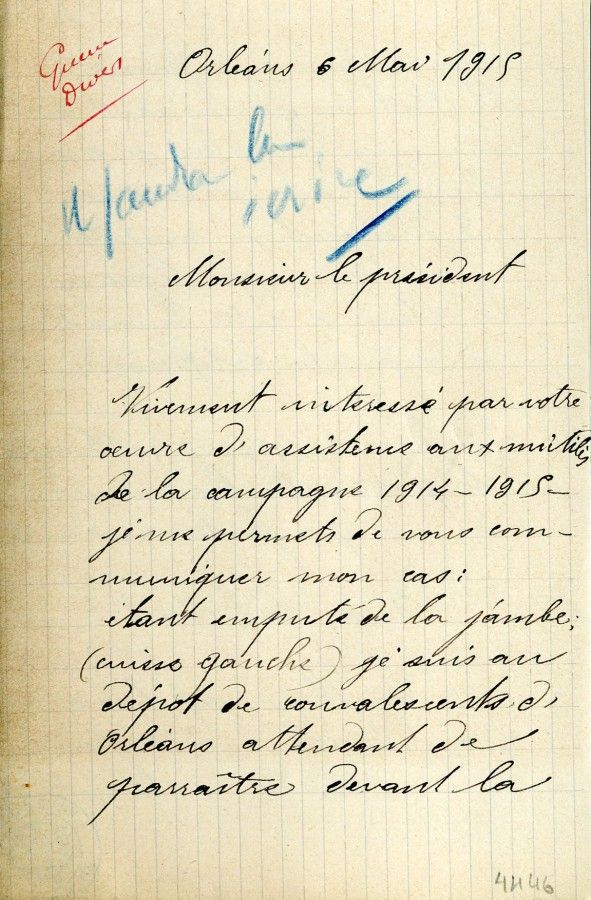 Guerre
Divers
Orléans 6 Mai 1915
Il faudra lui
écrire
Monsieur le président
Vivement intéressé par votre
œuvre d'assistence aux mutilés
de la campagne 1914-1915-
je me permets de vous com-
muniquer mon cas:
étant emputé de la jambe;
(cuisse gauche) je suis au
dépot de convalescents d'
Orléans attendant de
parraître devant la
4H46